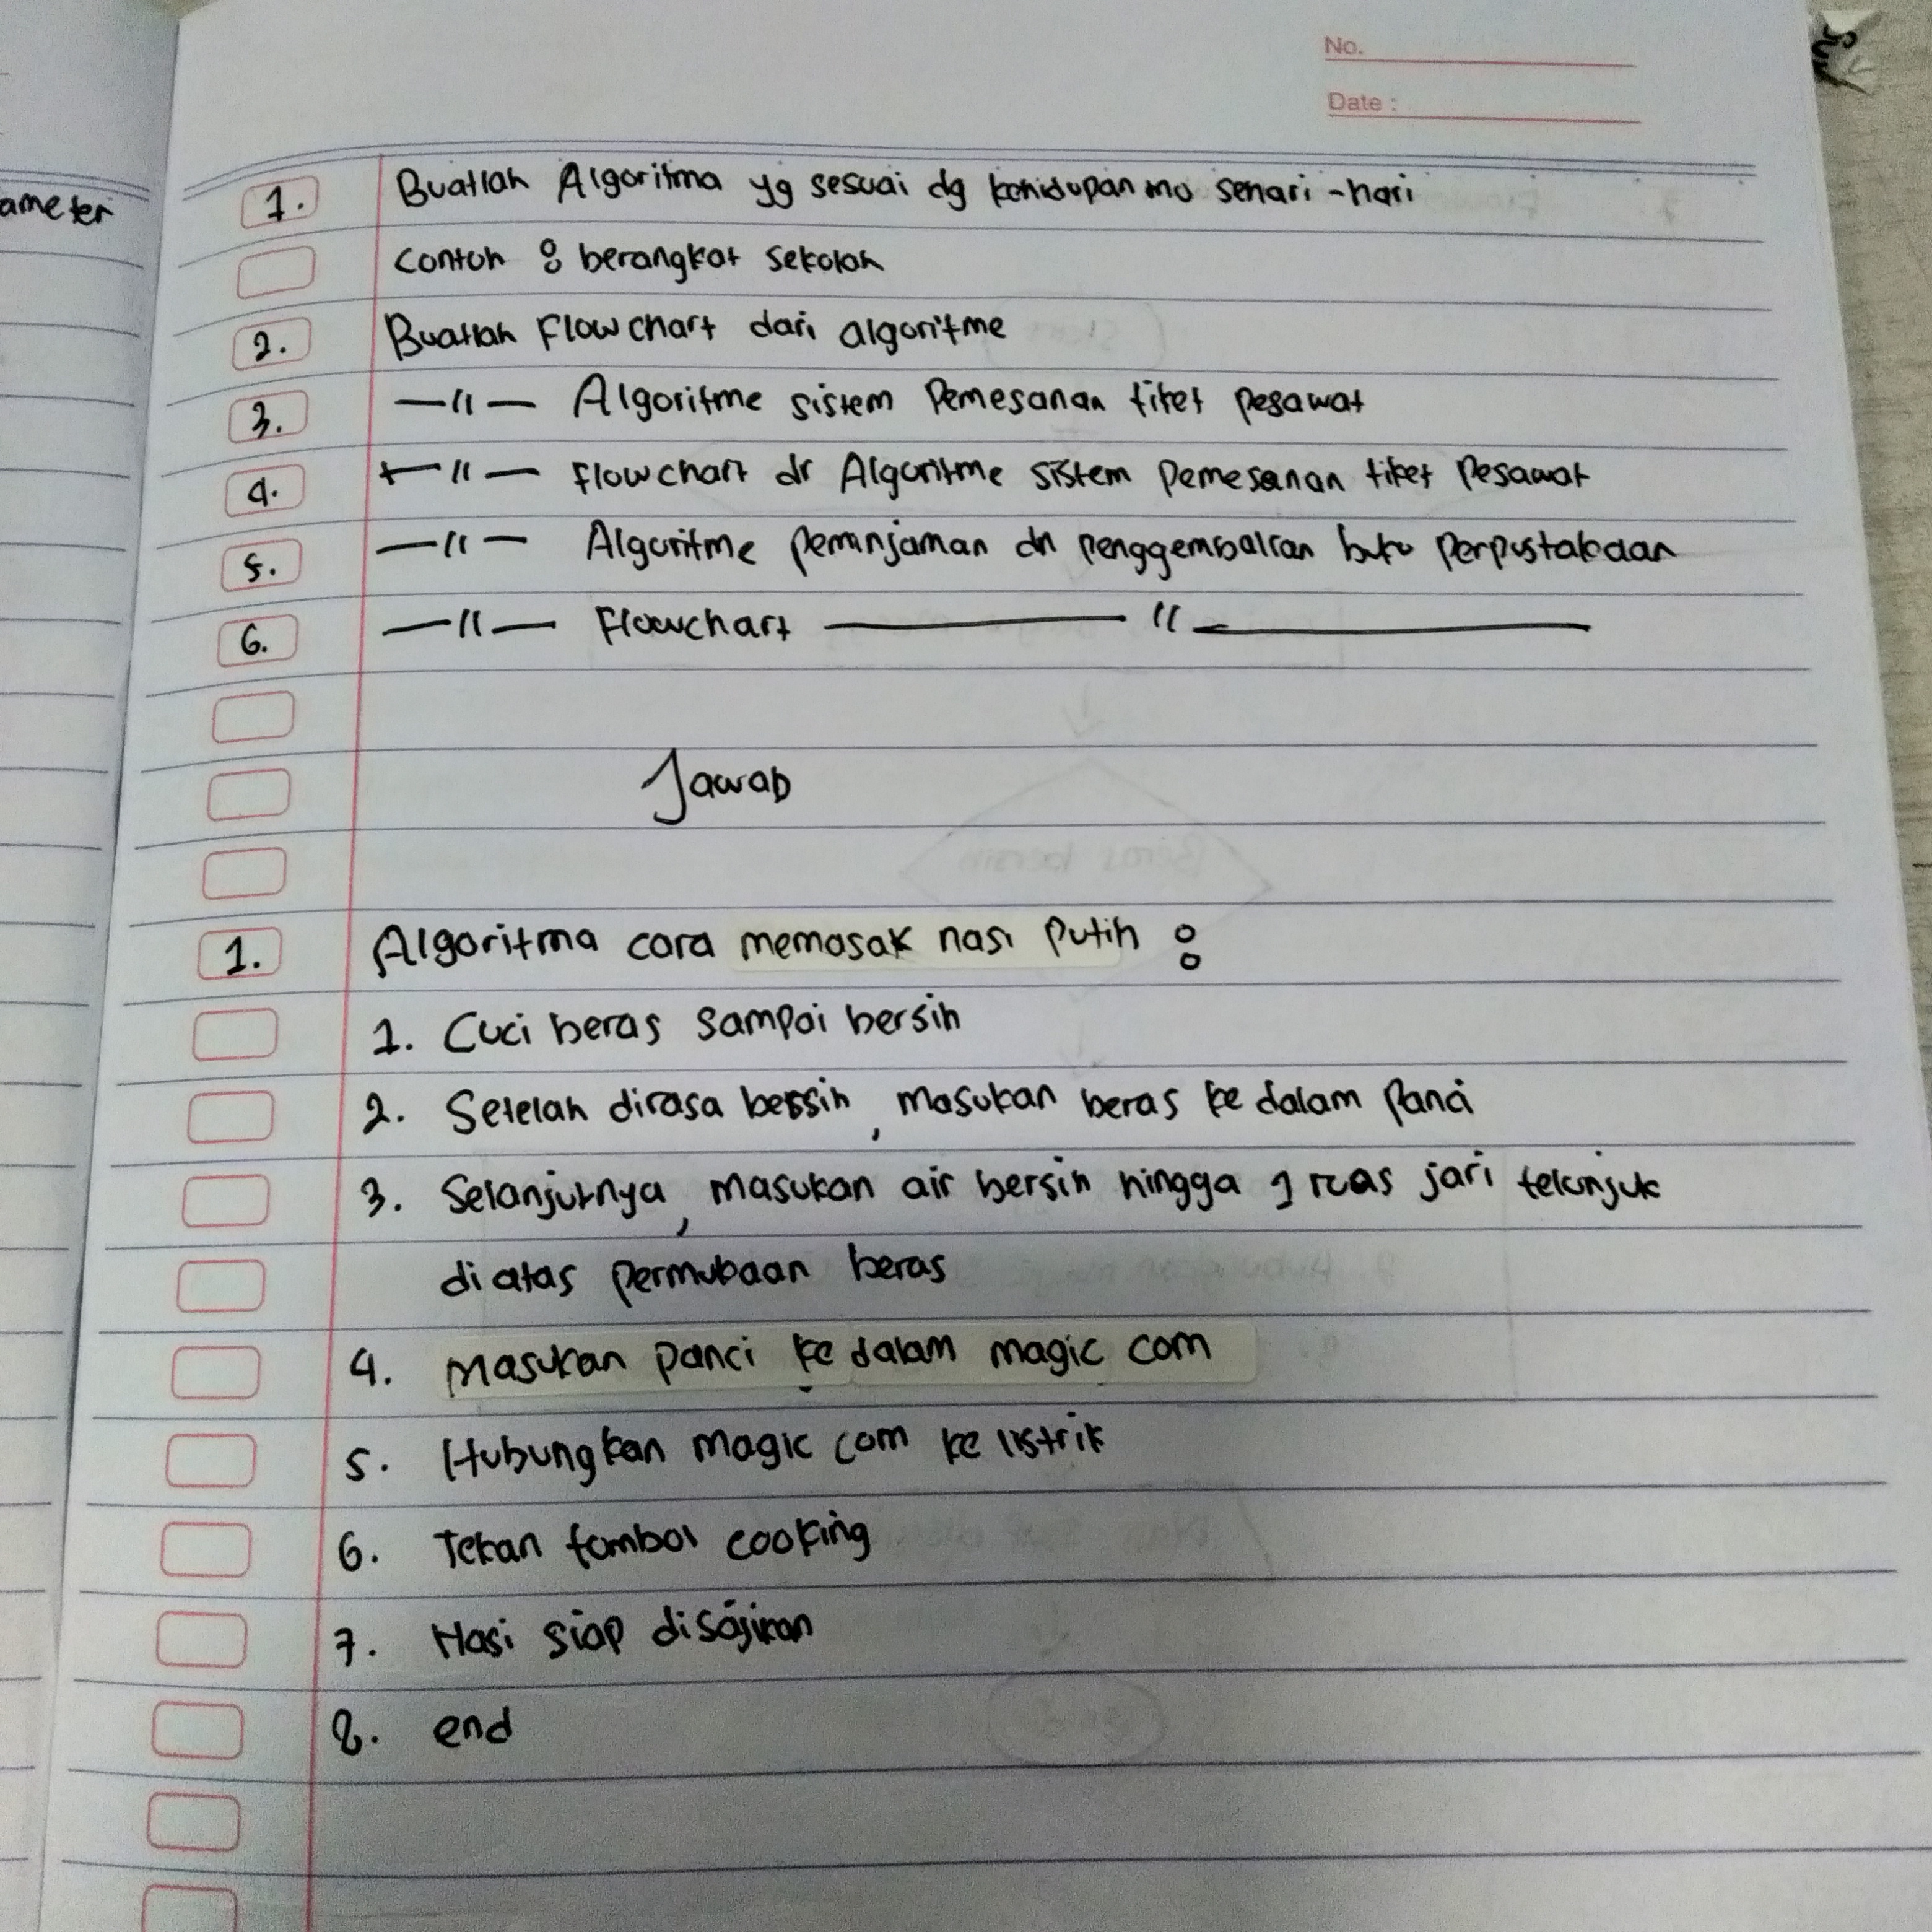 No.
Date :
ameter
1. Buatlah Algoritma yg sesuai dg kehidupan mu sehari-hari
contoh : berangkat sekolah
2. Buatlah Flowchart dari algoritme
3. —"— Algoritme sistem Pemesanan tiket pesawat
4. —"— flowchart dr Algoritme sistem pemesanan tiket Pesawat
5. —"— Algoritme peminjaman dn penggembalian buku Perpustakaan
6. —"— Flowchart ———— " ————
Jawab
1. Algoritma cara memasak nasi putih :
1. Cuci beras sampai bersih
2. Setelah dirasa bersih, masukan beras ke dalam Panci
3. Selanjutnya, masukan air bersih hingga 1 ruas jari telunjuk
di atas permukaan beras
4. Masukan panci ke dalam magic com
5. Hubungkan magic com ke listrik
6. Tekan tombol cooking
7. Nasi siap disajikan
8. end